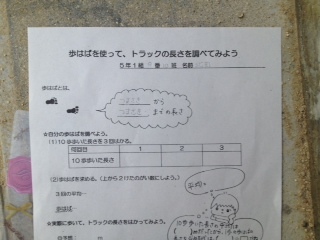 歩はばを使って、トラックの長さを調べてみよう
5年1組 番 班 名前
歩はばとは、
つま先 から
つま先 までの長さ
☆自分の歩はばを調べよう。
(1)10歩歩いた長さを3回はかる。
何回目 1 2 3
10歩歩いた長さ
(2)歩はばを求める。(上から2けたのがい数にしよう。)
平均=
3回の平均…
歩はば…
☆実際に歩いて、トラックの長さをはかってみよう。
10歩歩いた長さの平均は